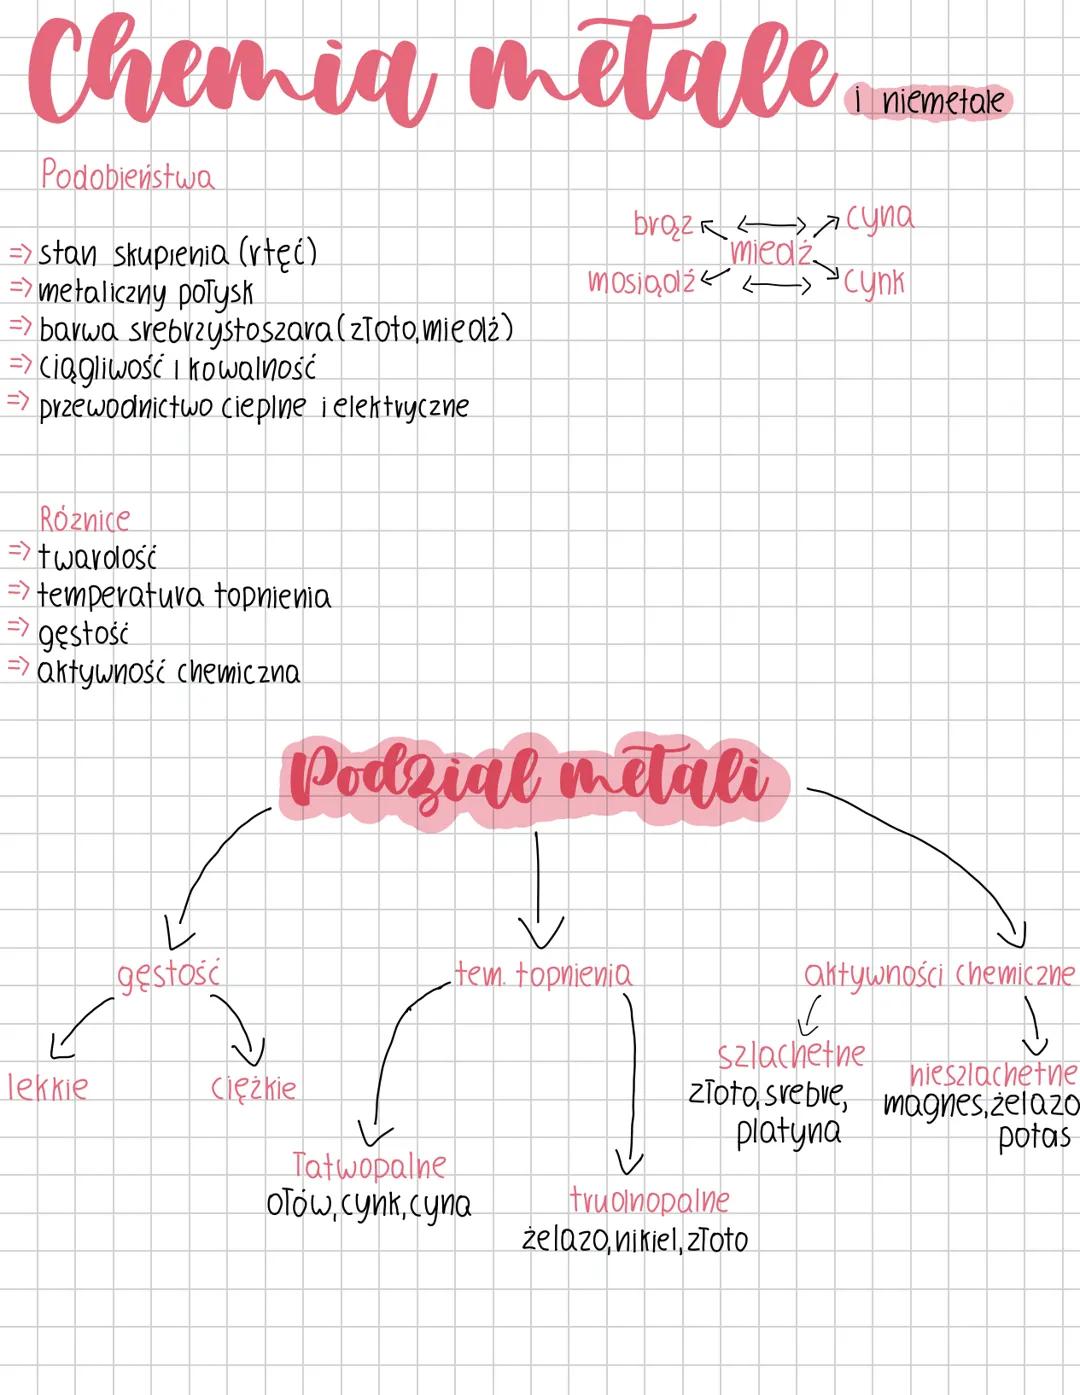 Chemia metale
i niemetale
Podobieństwa
brąz
cyna
miedź
mosiądź
cynk
=> stan skupienia (rtęć)
=> metaliczny połysk
=> barwa srebrzystoszara (złoto, miedź)
=> ciągliwość i kowalność
=> przewodnictwo cieplne i elektryczne
Róznice
=> twardość
=> temperatura topnienia
=> gęstość
=> aktywność chemiczna
Podział metali
gęstość
tem. topnienia
aktywności chemiczne
lekkie
ciężkie
szlachetne
złoto, srebre,
platyna
nieszlachetne
magnes, żelazo
potas
łatwopalne
ołów, cynk, cyna
trudnopalne
żelazo, nikiel, złoto